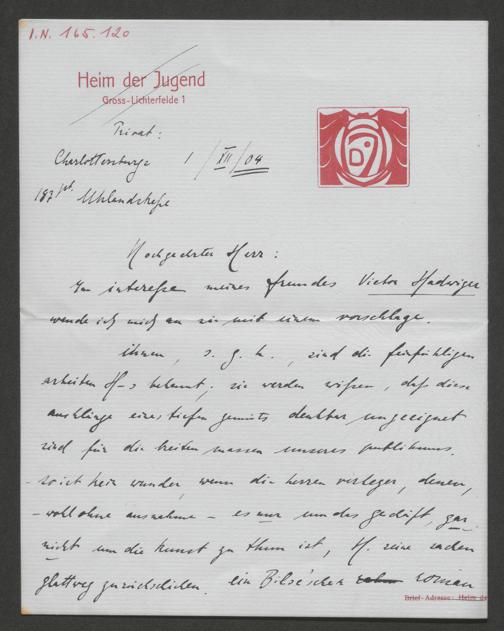 I.N. 165.120
Heim der Jugend
Gross-Lichterfelde 1
Privat:
Charlottenburg 1/XII/04
187 pt. Uhlandstraße
Hochgeehrter Herr:
Im interesse meines freundes Victor Hadwiger
wende ich mich an sie mit einem vorschlage.
ihnen, s. g. h., sind die feinfühligen
arbeiten H-s bekannt; sie werden wißen, daß diese
ausklänge eines tiefen gemüts denkbar ungeeignet
sind für die breiten massen unseres publikums.
- so ist kein wunder, wenn die herren verleger, denen,
- woll ohne ausnahme - es nur um des geschäft, gar
nicht um die kunst zu thun ist, H. seine sachen
glattweg zurückschicken. ein Bilse'scher roman
Brief-Adresse: Heim de